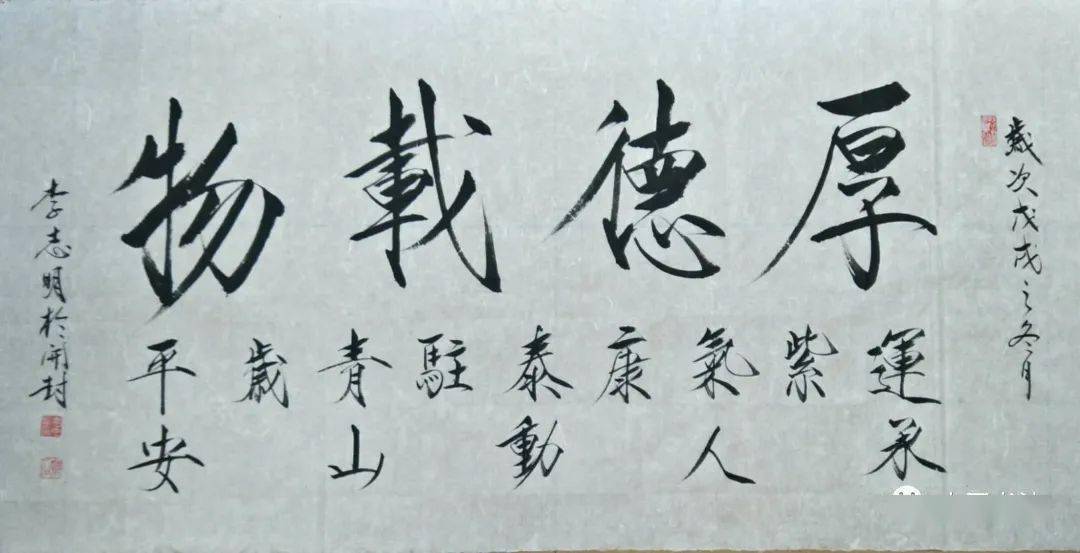 歲次戊戌之冬月
厚德載物
運承紫氣人康泰動駐青山歲平安
李志明於開封